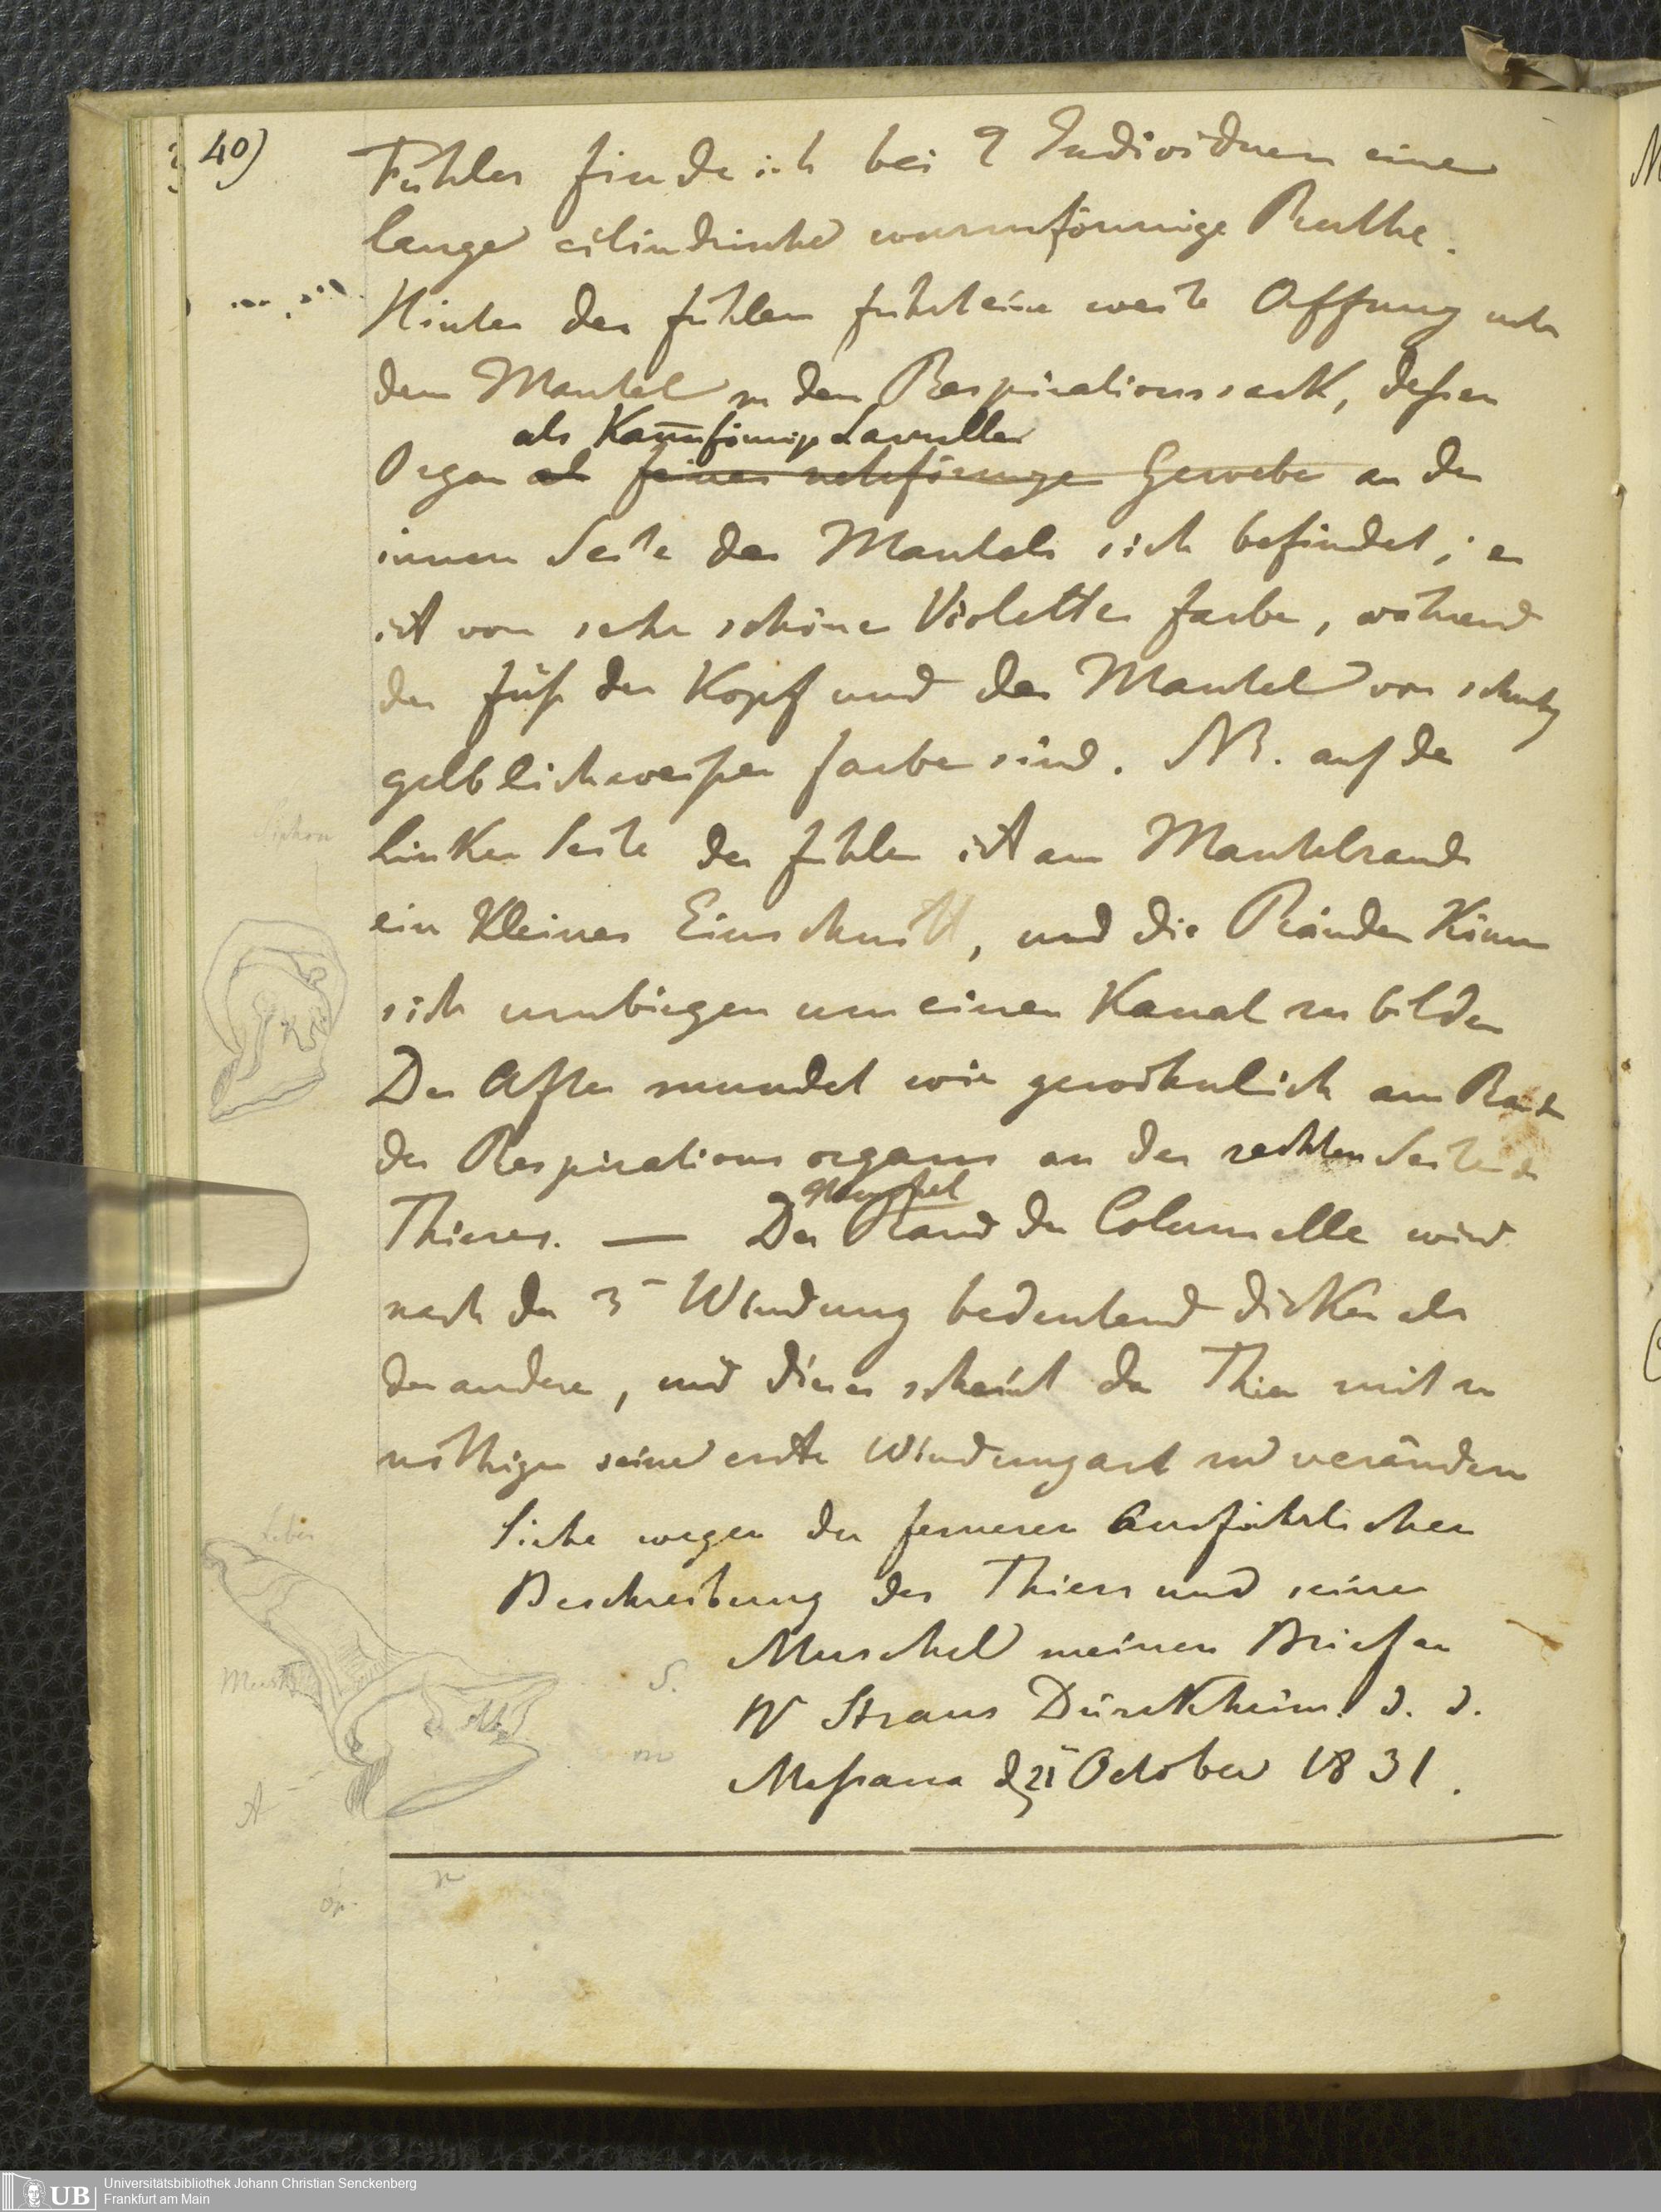 40)
Fühler finde ich bei 2 Individuen eine
lange cilindrische wurmförmige Ruthe.
Hinter den Fühlern führt eine weite Öffnung unter
dem Mantel zu dem Respirationssack, deßen
als Kammförmige Lamellen
Organ als feines netzförmiges Gewebe an der
innern Seite des Mantels sich befindet; er
ist von sehr schöner Violetter Farbe, während
der Fuß der Kopf und der Mantel von schmutzig
gelblichweißer Farbe sind. NB. auf der
Siphon
linken Seite der Fühler ist am Mantelrande
ein kleiner Einschnitt, und die Ränder können
sich umbiegen um einen Kanal zu bilden
Der After mundet wie gewöhnlich am Rande
des Respirationsorgans an der rechten Seite des
Thieres. — Der Rand der Columelle wird
nach der 3ten Windung bedeutend dicker als
der andere, und dieses scheint das Thier mit zu
nöthigen seine erste Windungart zu verändern
Siehe wegen der ferneren Ausführlichen
Leber
Beschreibung des Thiers und seiner
Muschel meinen Brief an
S.
Mr Straus Dürckheim d. d.
m
Meßana d 21 October 1831.
A
n
op.
Universitätsbibliothek Johann Christian Senckenberg
Frankfurt am Main
UB